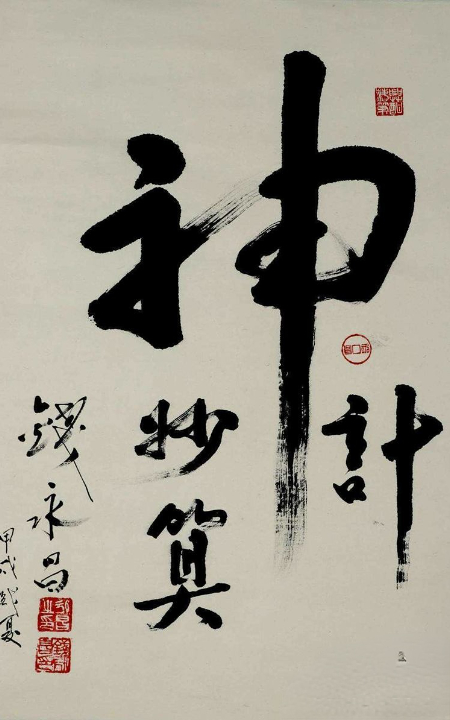 神計
妙算
錢永昌
甲戌
夏